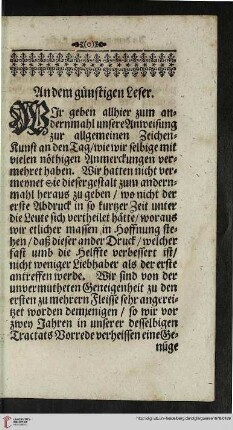 (o)
An dem günstigen Leser.
WIr geben allhier zum an-
dernmahl unsere Anweisung
zur allgemeinen Zeichen-
Kunst an den Tag/ wie wir selbige mit
vielen nöthigen Anmerckungen ver-
mehret haben. Wir hatten nicht ver-
mennet Sie dieser gestalt zum andern-
mahl heraus zu geben / wo nicht der
erste Abdruck in so kurtzer Zeit unter
die Leute sich vertheilet hätte/ woraus
wir etlicher massen in Hoffnung ste-
hen / daß dieser ander Druck/ welcher
fast umb die Helffte verbessert ist/
nicht weniger Liebhaber als der erste
antreffen werde. Wir sind von der
unvermutheten Geneigenheit zu den
ersten zu mehrern Fleisse sehr angerei-
tzet worden demjenigen / so wir vor
zwey Jahren in unserer desselbigen
Tractats Vorrede verheissen eine Ge-
nüge